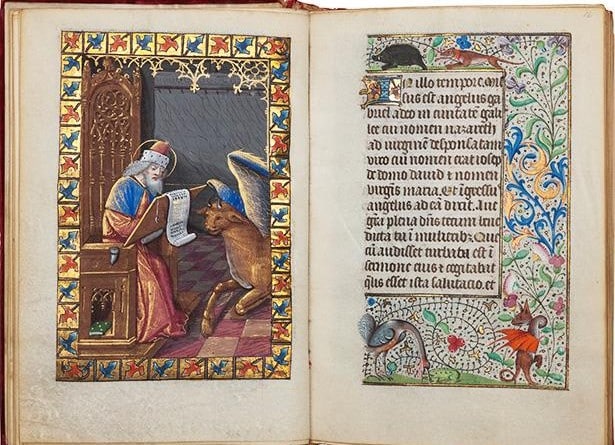 In illo tempore. Mis
sus est angelus ga
briel a deo in ciuitatẽ gali
lee cui nomen nazareth
ad uirginem desponsatam
uiro cui nomen erat ioseph
de domo dauid & nomen
uirgĩs maria. Et ingressus
angelus ad eã dixit. Aue
gr̃a plena dñs tecum bene
dicta tu ĩ mulieribꝫ. Que
cum audisset turbata est ĩ
sermone eius & cogitabat
qͣlis esset ista salutacio. et